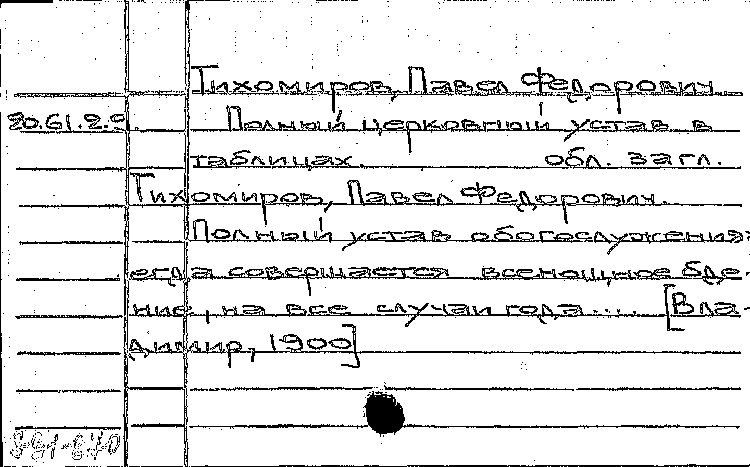 Тихомиров, Павел Федорович
20.61.2.9. Полный церковный устав в
таблицах. обл. загл.
Тихомиров, Павел Федорович.
Полный устав обогослужения:
егда совершается всенощное бде-
ние, на все случаи года.... [Вла-
димир, 1900]